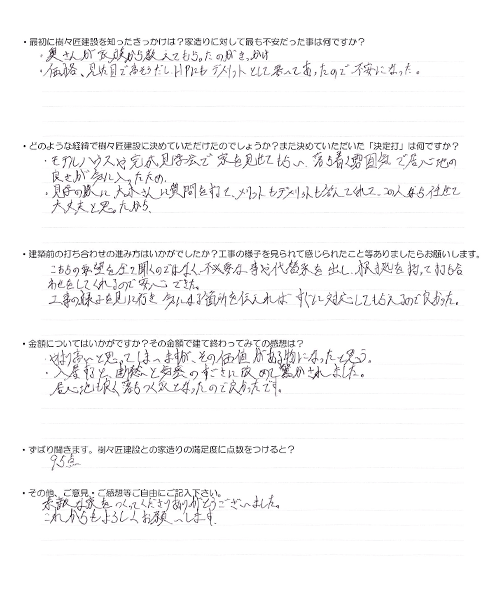 ・最初に樹々匠建設を知ったきっかけは？家造りに対して最も不安だった事は何ですか？
・奥さんが家族から教えてもらったのがきっかけ
・価格、見た目で高そうだしHPにもデメリットとして書いてあったので不安になった。
・どのような経緯で樹々匠建設に決めていただけたのでしょうか？また決めていただいた「決定打」は何ですか？
・モデルハウスや完成見学会で家を見せてもらい、落ち着く雰囲気で居心地の
良さが気に入ったため。
・見学の際に大水さんに質問を もメリットもデメリットも答えてくれて、この人なら任せて
大丈夫と思ったから。
・建築前の打ち合わせの進み方はいかがでしたか？工事の様子を見られて感じられたこと等ありましたらお願いします。
こちらの希望を全て聞くのではなく、不必要な 代替案を出し、根拠を持って打ち合
わせをしてくれるので安心できた。
工事の様子を見に行き、気になる箇所を伝えれば、すぐに対応してもらえるので良かった。
・金額についてはいかがですか？その金額で建て終わってみての感想は？
・やはり高いと思ってしまいますが、その価値がある物になったと思う。
・入居すると、断熱と の すごさに改めて驚かされました。
居心地も良く落ちつく家となったので良かったです。
・ずばり聞きます。樹々匠建設との家造りの満足度に点数をつけると？
95点
・その他、ご意見・ご感想等ご自由にご記入下さい。
素敵な家をつくってくださりありがとうございました。
これからもよろしくお願いします。